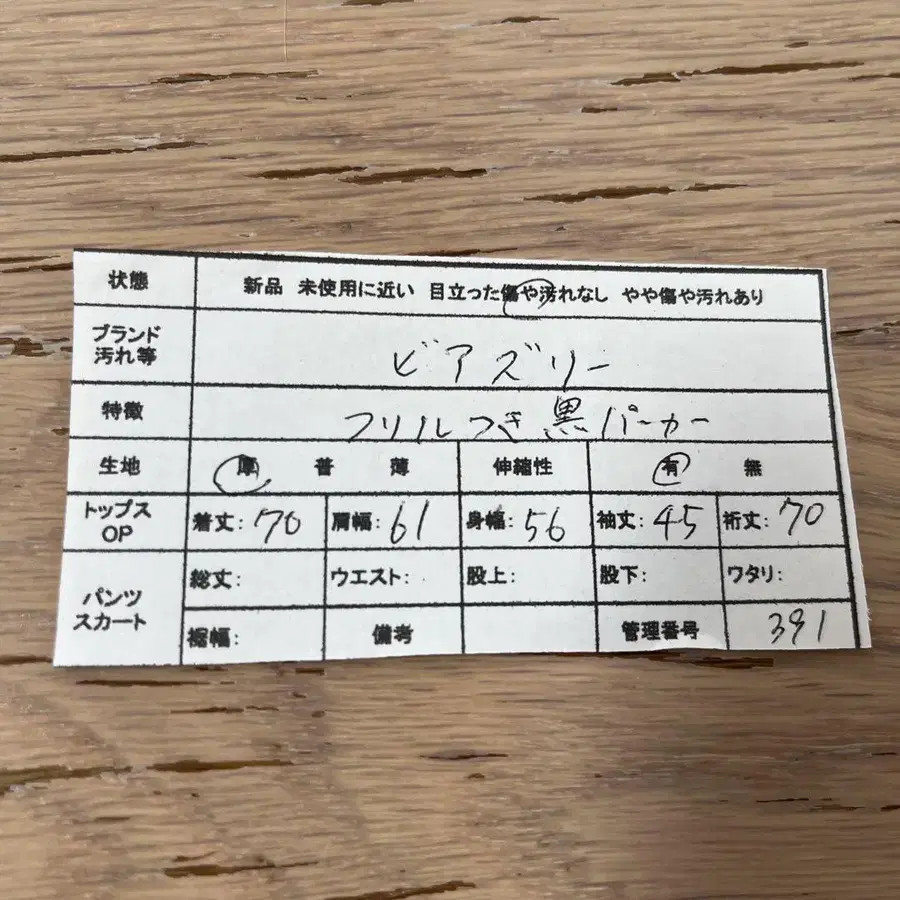 状態 新品 未使用に近い 目立った傷や汚れなし やや傷や汚れあり
ブランド
汚れ等
ビアズリー
特徴 フリルつき黒パーカー
生地 厚 普 薄 伸縮性 有 無
トップス
OP
着丈:70 肩幅:61 身幅:56 袖丈:45 裄丈:70
パンツ
スカート
総丈: ウエスト: 股上: 股下: ワタリ:
裾幅: 備考 管理番号 391